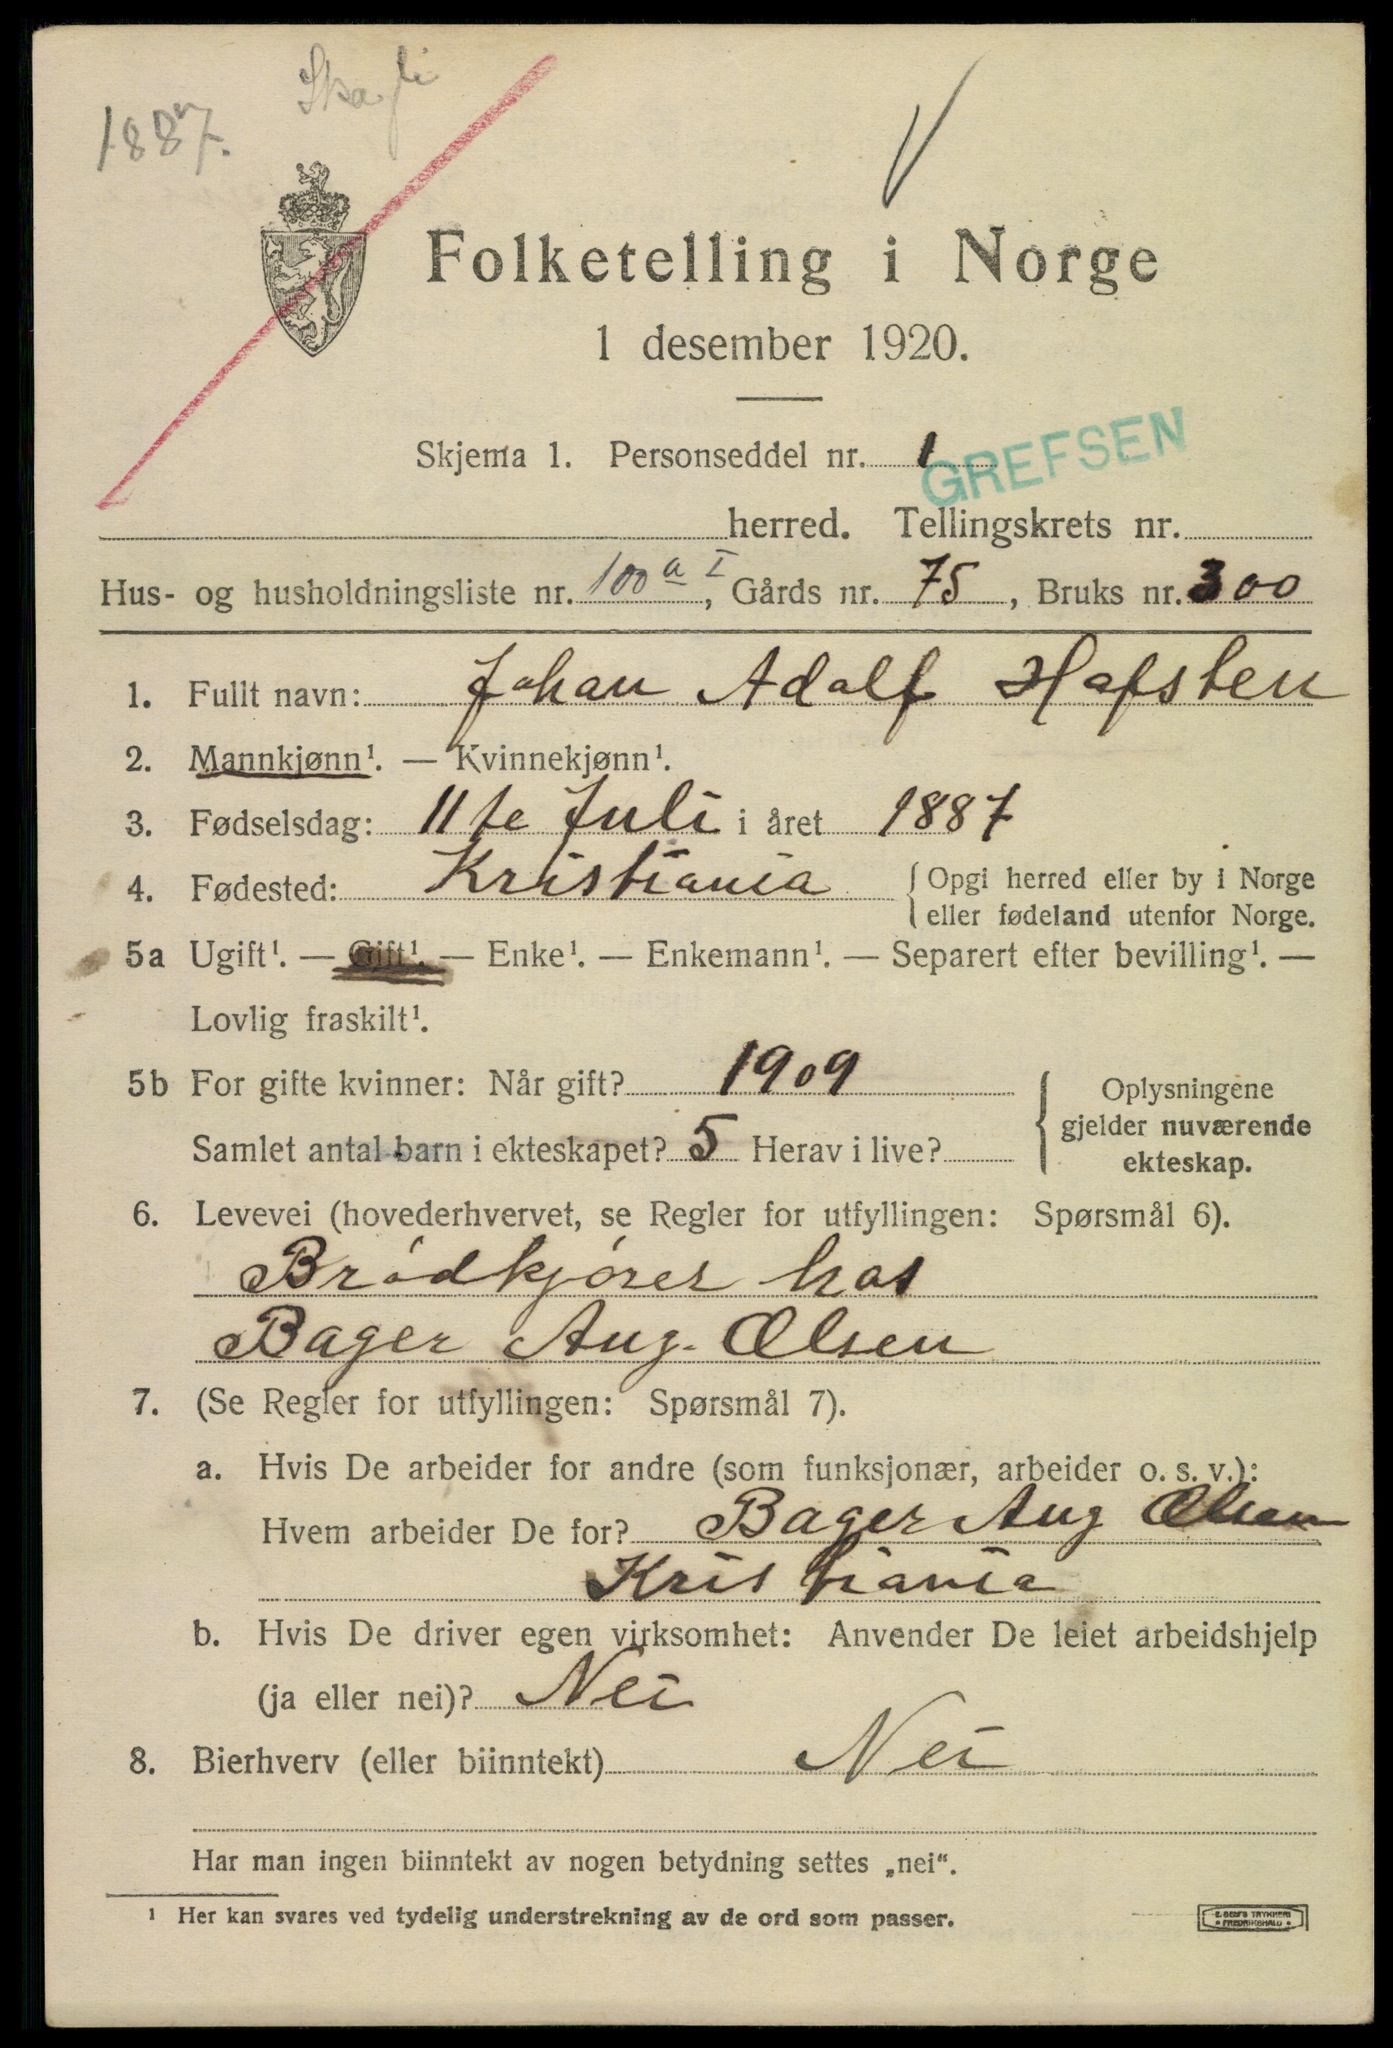 1887.
Folketelling i Norge
1 desember 1920.
Skjema 1. Personseddel nr. 1
GREFSEN
herred. Tellingskrets nr.
Hus- og husholdningsliste nr. 100 a I, Gårds nr. 75, Bruks nr. 300
1. Fullt navn: Johan Adolf Hafsten
2. Mannkjønn¹. — Kvinnekjønn¹.
3. Fødselsdag: 11te Juli i året 1887
4. Fødested: Kristiania { Opgi herred eller by i Norge
eller fødeland utenfor Norge.
5a Ugift¹. — Gift¹. — Enke¹. — Enkemann¹. — Separert efter bevilling¹. —
Lovlig fraskilt¹.
5b For gifte kvinner: Når gift? 1909
Samlet antal barn i ekteskapet? 5 Herav i live?
{ Oplysningene
gjelder nuværende
ekteskap.
6. Levevei (hovederhvervet, se Regler for utfyllingen: Spørsmål 6).
Brödkjörer hos
Bager Aug. Olsen
7. (Se Regler for utfyllingen: Spørsmål 7).
a. Hvis De arbeider for andre (som funksjonær, arbeider o. s. v.):
Hvem arbeider De for? Bager Aug Olsen
Kristiania
b. Hvis De driver egen virksomhet: Anvender De leiet arbeidshjelp
(ja eller nei)? Nei
8. Bierhverv (eller biinntekt) Nei
Har man ingen biinntekt av nogen betydning settes „nei“.
¹ Her kan svares ved tydelig understrekning av de ord som passer.
TRYKKERI
FREDRIKSHALD